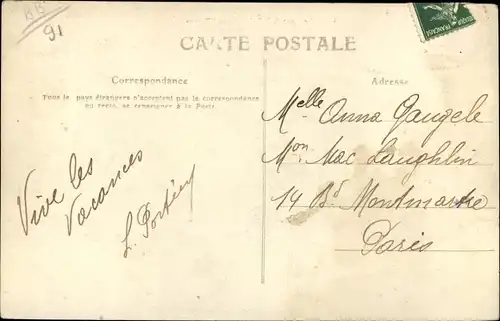 BB
91
CARTE POSTALE
Correspondance
Tous les pays étrangers n'acceptent pas la correspondance
au recto, se renseigner à la Poste.
Vive les
Vacances
L.
Adresse
Melle Anna Gaugele
Mon Mac Laughlin
14 Bd Montmartre
Paris